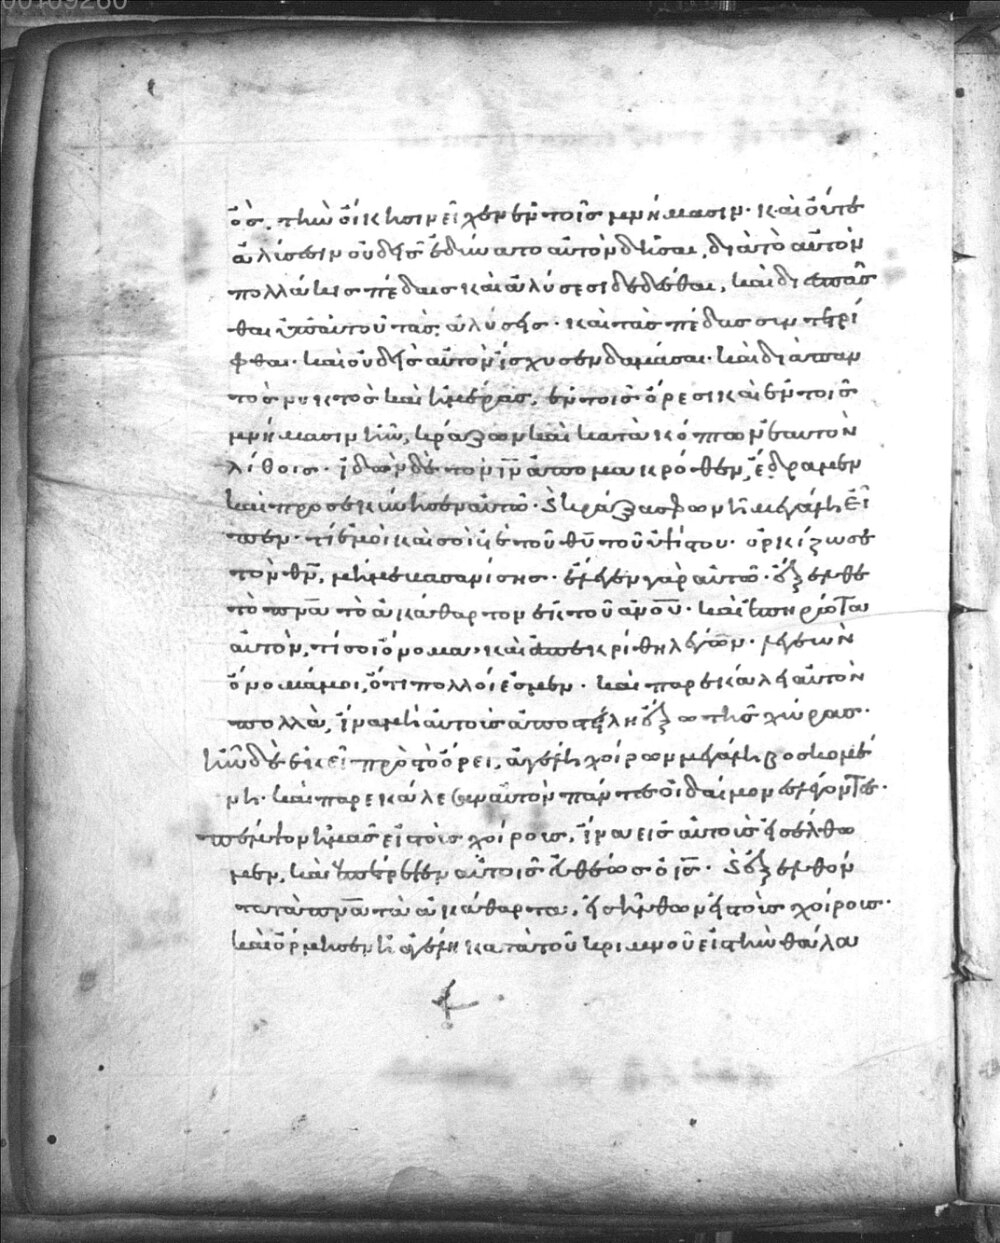 ὃς τὴν οἴκησιν εἶχεν ἐν τοῖς μνήμασιν· καὶ οὔτε
ἁλύσεσιν οὐδεὶς ἐδύνατο αὐτὸν δῆσαι, διὰ τὸ αὐτὸν
πολλάκις πέδαις καὶ ἁλύσεσι δεδέσθαι, καὶ διεσπᾶσ
θαι ὑπ' αὐτοῦ τὰς ἁλύσεις· καὶ τὰς πέδας συντετρί
φθαι· καὶ οὐδεὶς αὐτὸν ἴσχυσεν δαμάσαι· καὶ διὰ παν
τὸς νυκτὸς καὶ ἡμέρας, ἐν τοῖς ὄρεσι καὶ ἐν τοῖς
μνήμασιν ἦν, κράζων καὶ κατακόπτων ἑαυτὸν
λίθοις· ἰδὼν δὲ τὸν ιν ἀπὸ μακρόθεν, ἔδραμεν
καὶ προσεκύνησεν αὐτῶ· καὶ κράξας φωνῆ μεγάλη εἶ
πεν· τί ἐμοὶ καὶ σοὶ υἱὲ τοῦ θυ τοῦ ὑψίστου· ὁρκίζω σε
τὸν θν, μή με βασανίσης· ἔλεγεν γὰρ αὐτῶ· ἔξελθε
τὸ πνα τὸ ἀκάθαρτον ἐκ τοῦ ανου· καὶ ἐπηρώτα
αὐτὸν, τί σοι ὄνομα· καὶ ἀπεκρίθη λέγων· λεγεὼν
ὄνομά μοι, ὅτι πολλοί ἐσμεν· καὶ παρεκάλει αὐτὸν
πολλὰ, ἵνα μὴ αὐτοὺς ἀποστείλη ἔξω τῆς χώρας·
ἦν δὲ ἐκεῖ πρὸς τὸ ὄρει, ἀγέλη χοίρων μεγάλη βοσκομέ
νη· καὶ παρεκάλεσαν αὐτὸν πάντες οἱ δαίμονες λέγοντες·
πέμψον ἡμᾶς εἰς τοὺς χοίρους, ἵνα εἰς αὐτοὺς εἰσέλθω
μεν, καὶ ἐπέτρεψεν αὐτοῖς εὐθέως ὁ ις· καὶ ἐξελθόν
τα τὰ πνα τὰ ἀκάθαρτα, εἰσῆλθον εἰς τοὺς χοίρους·
καὶ ὥρμησεν ἡ ἀγέλη κατὰ τοῦ κρημνοῦ εἰς τὴν θάλα